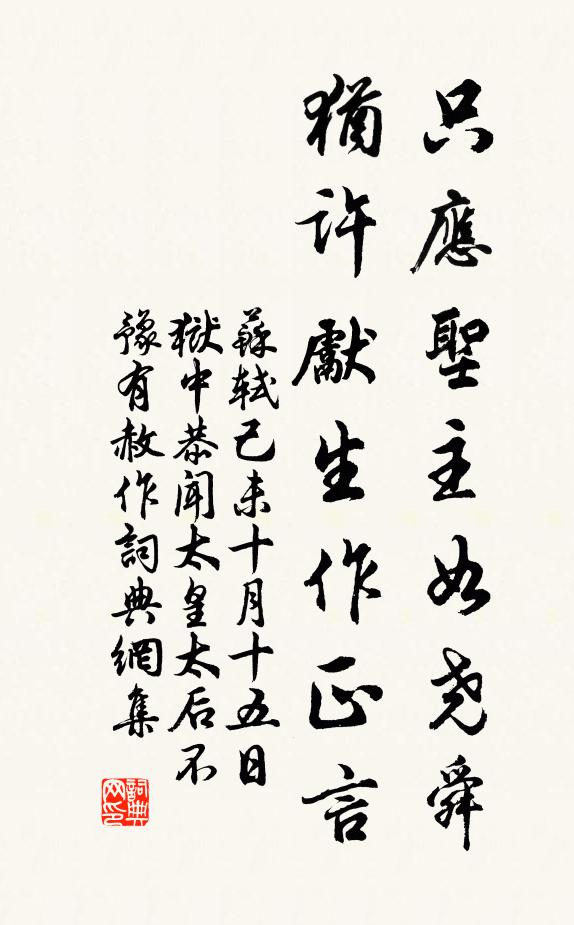 只應聖主如堯舜
猶許獻生作正言
蘇軾己未十月十五日
獄中恭聞太皇太后不
豫有赦作詞典網集
詞典網印